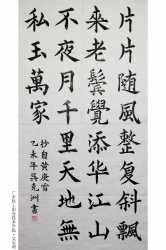 片片随風整复斜飄
来老鬓覺添华江山
不夜月千里天地無
私玉萬家
抄自黄庚雪
乙未年吴克洲書